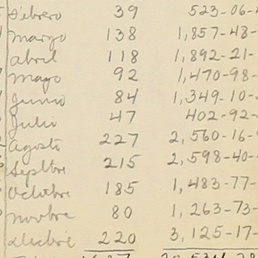 Febrero 39 523-06-
marzo 138 1,857-48-
abril 118 1,892-21-
mayo 92 1,470-98-
Junio 84 1,349-10-
Julio 47 402-92-
agosto 227 2,560-16-
Septbre 215 2,598-40-
Octobre 185 1,483-77-
novbre 80 1,263-73-
dicbre 220 3,125-17-